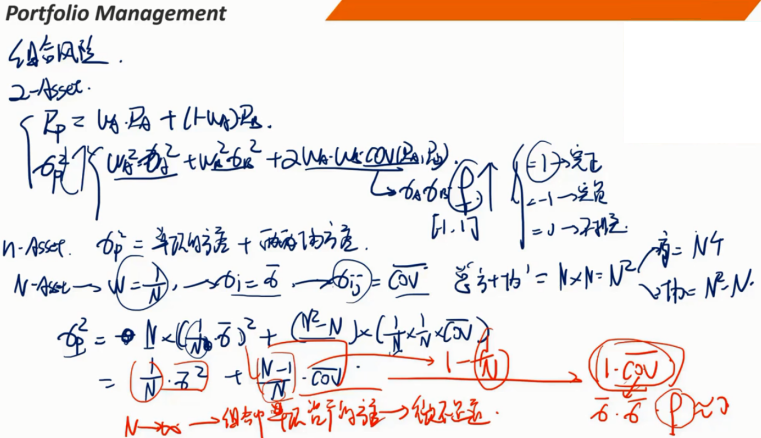 Portfolio Management
组合风险.
2-Asset.
R_p = W_A·R_A + (1-W_A)R_B.
σ_p²↑ W_A²σ_A² + W_B²σ_B² + 2W_A·W_B COV(R_A,R_B).
→ σ_Aσ_B ρ ↑
[-1,1]
=1 → 完正
=-1 → 完负
=0 →
n-Asset. σ_p² = 单项的方差 + 两两协方差.
N-Asset → W=1/N, → σ_i=σ̄ → σ_ij=COV̄ 总:方+协 = N×N=N²
方=N个
协=N²-N.
σ_p² = N×(1/N·σ̄)² + (N²-N)×(1/N×1/N×COV̄)
= 1/N·σ̄² + (N-1)/N·COV̄. → 1-1/N → 1·COV̄
σ̄·σ̄·ρ≈0
N→∞ → 组合中单项资产的方差 →